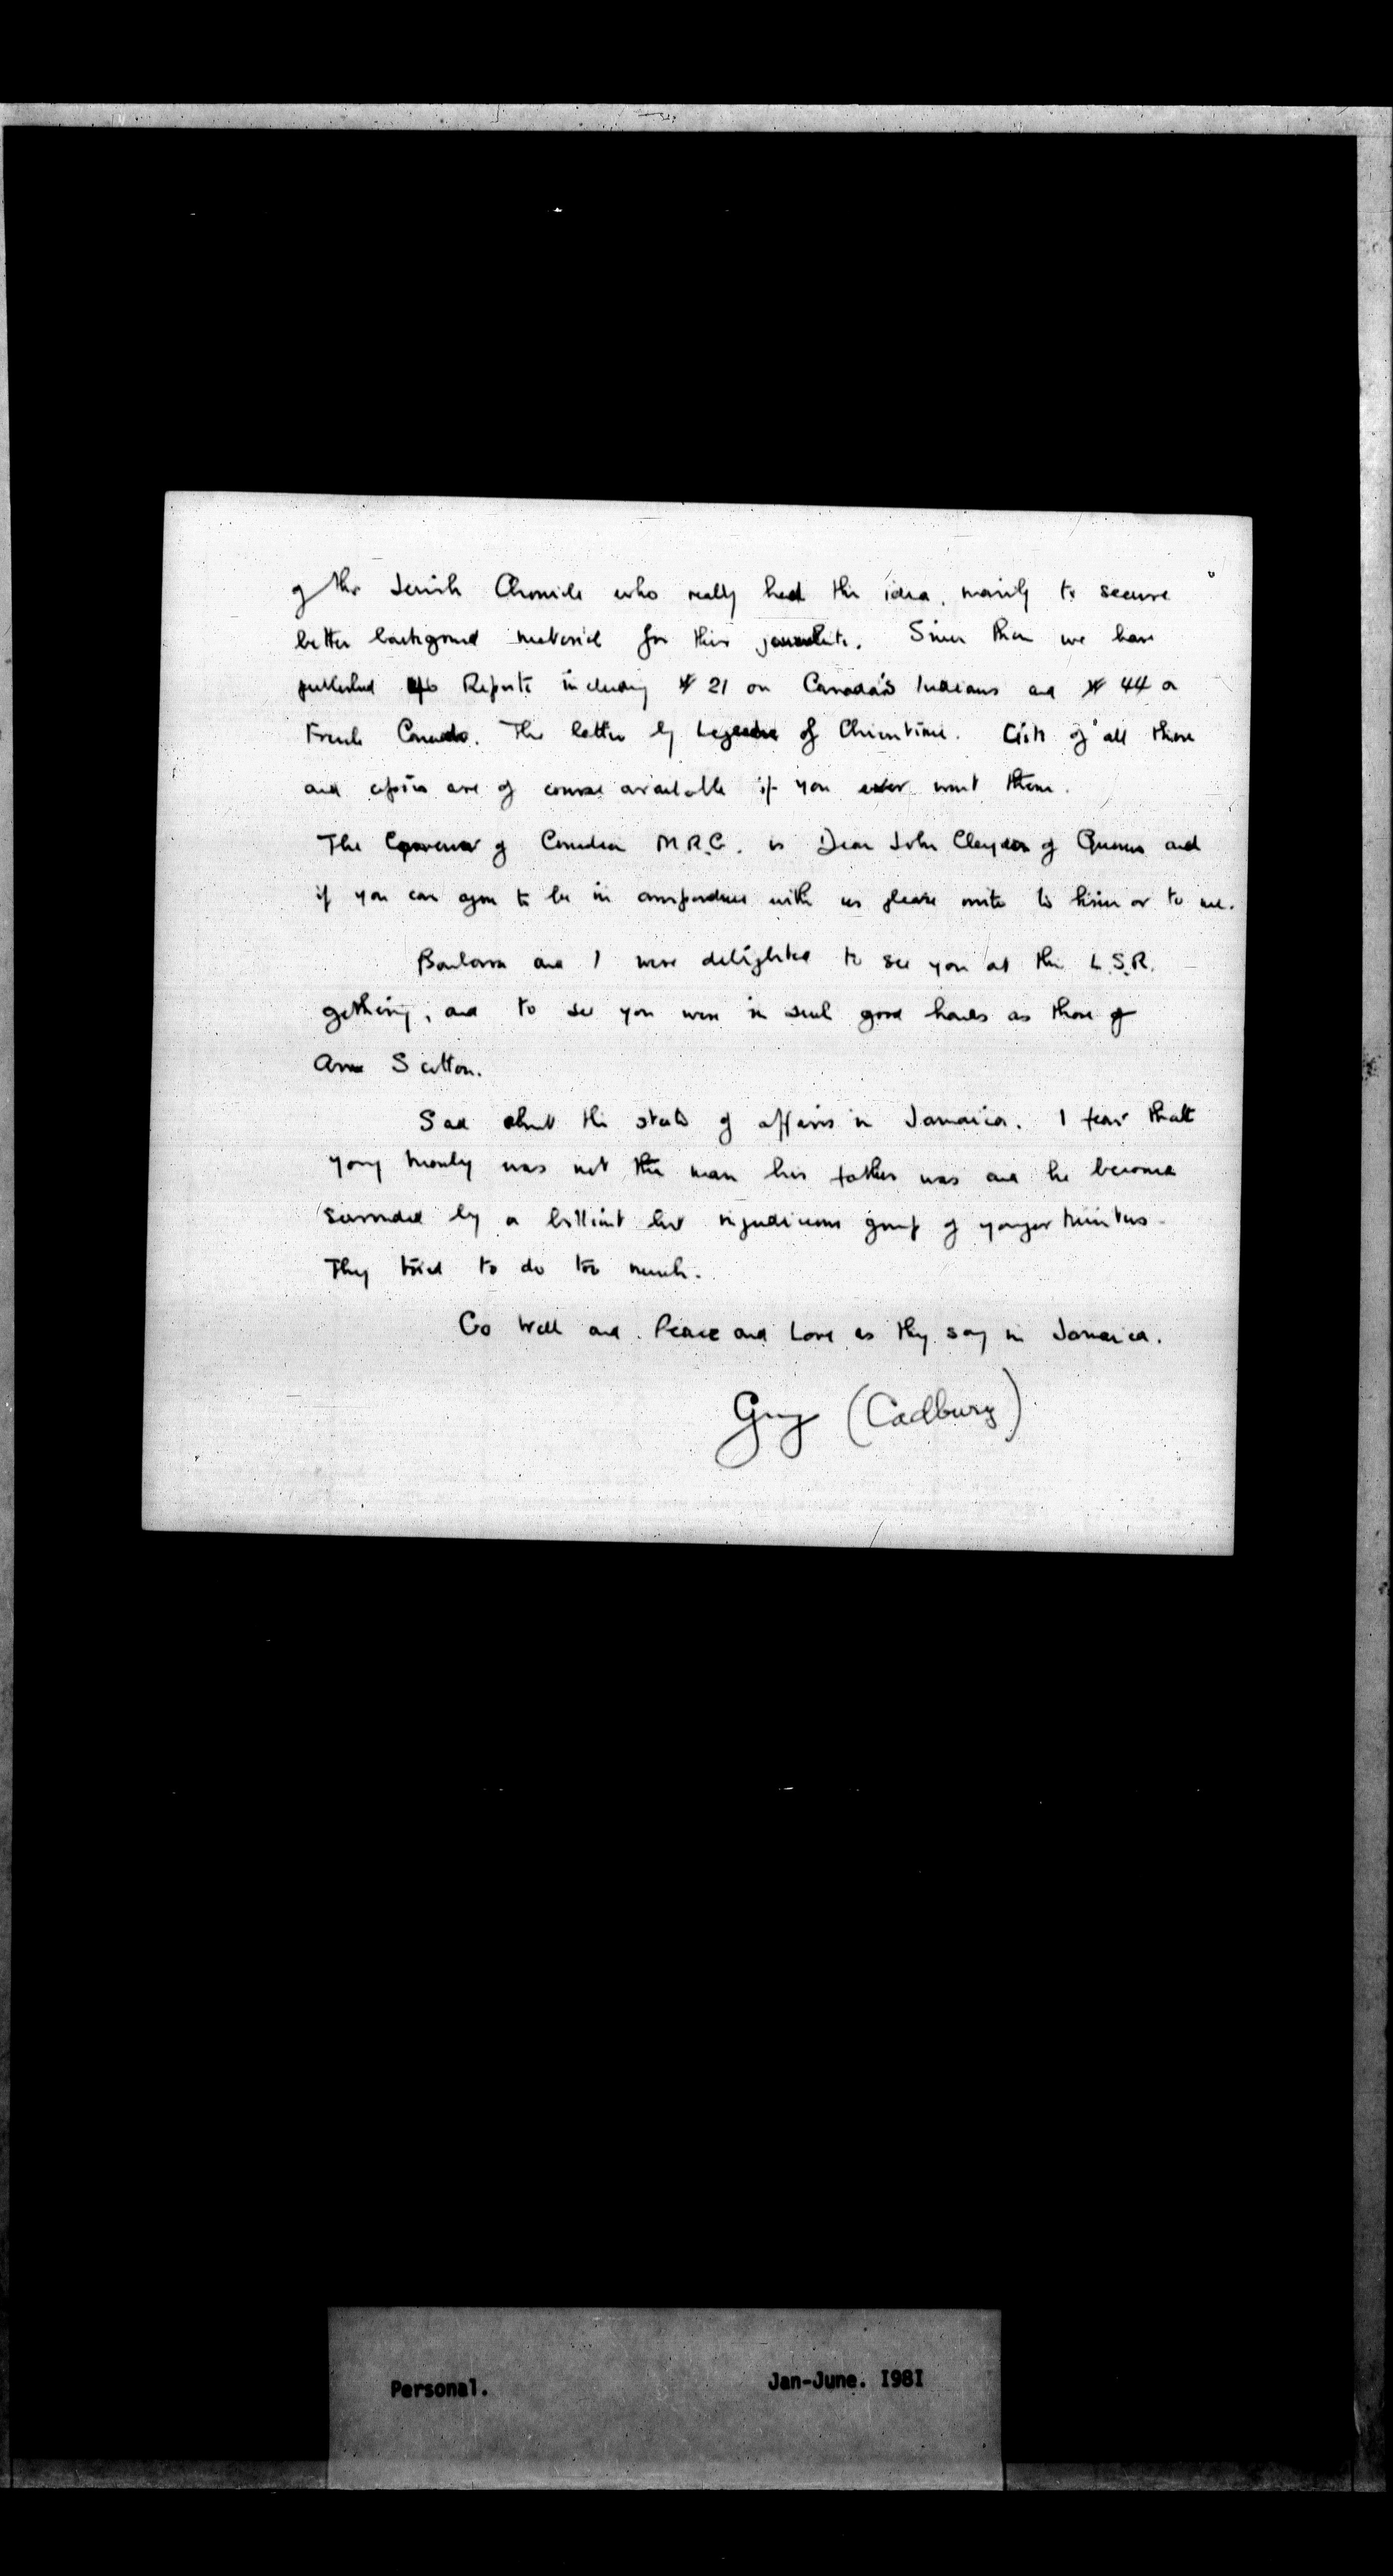 of the Jewish Chronicle who really had the idea, mainly to secure
better background material for their journalists. Since then we have
published 46 Reports including # 21 on Canada's Indians and # 44 on
French Canada. The latter by Legendre of Chicoutimi. Lists of all these
and copies are of course available if you ever want them.
The Convenor of Canadian M.R.G. is Dean John Claydon of Queens and
if you can agree to be in correspondence with us please write to him or to me.
Barbara and I were delighted to see you at the L.S.R.
gathering, and to see you were in such good hands as those of
Ann Scotton.
Sad about the state of affairs in Jamaica. I fear that
young Manley was not the man his father was and he became
surrounded by a brilliant but injudicious group of younger Ministers.
They tried to do too much.
Go Well and Peace and Love as they say in Jamaica.
(Cadbury)
Personal. Jan-June. I98I